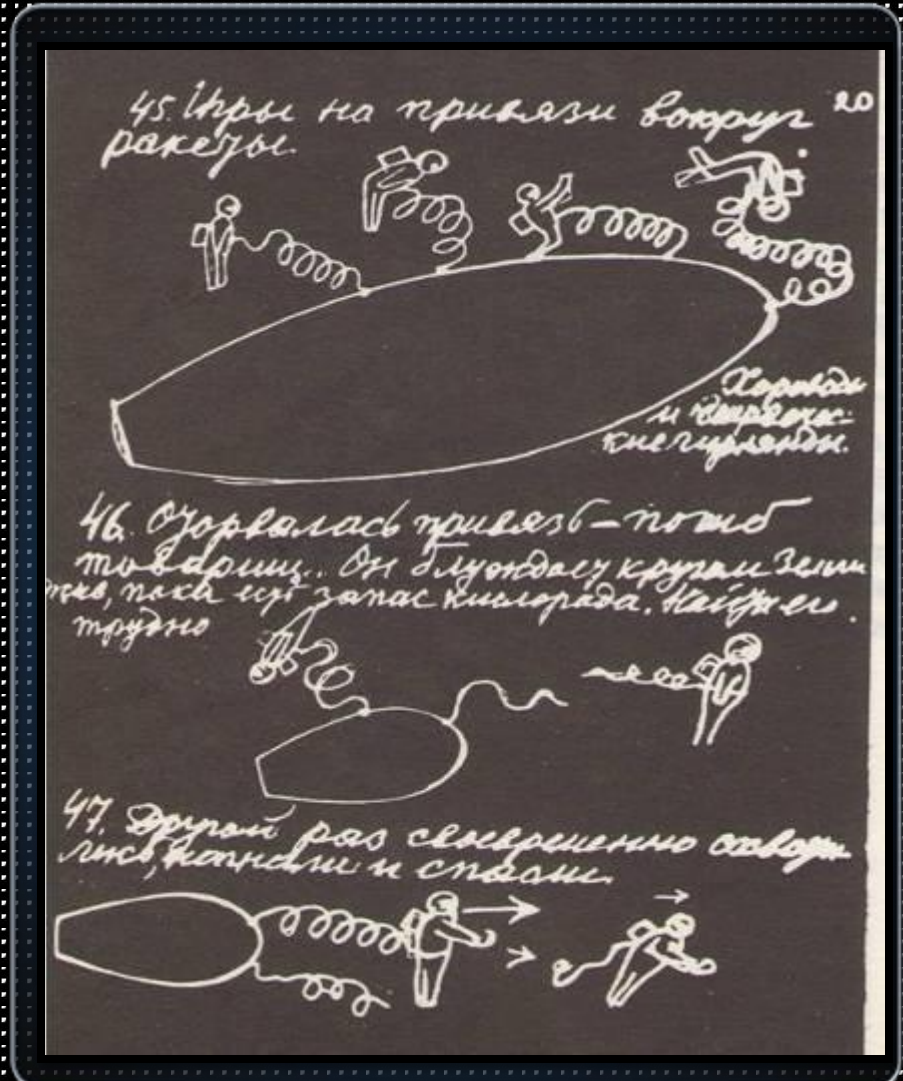 45. Игры на привязи вокруг 20
ракеты.
Хороводы
и
гирлянды.
46. Оторвалась привязь – погиб
товарищ.. Он блуждает кругом Земли
пока есть запас кислорода. Найти его
трудно
47. Другой раз своевременно схвати
лись, нагнали и спасли.